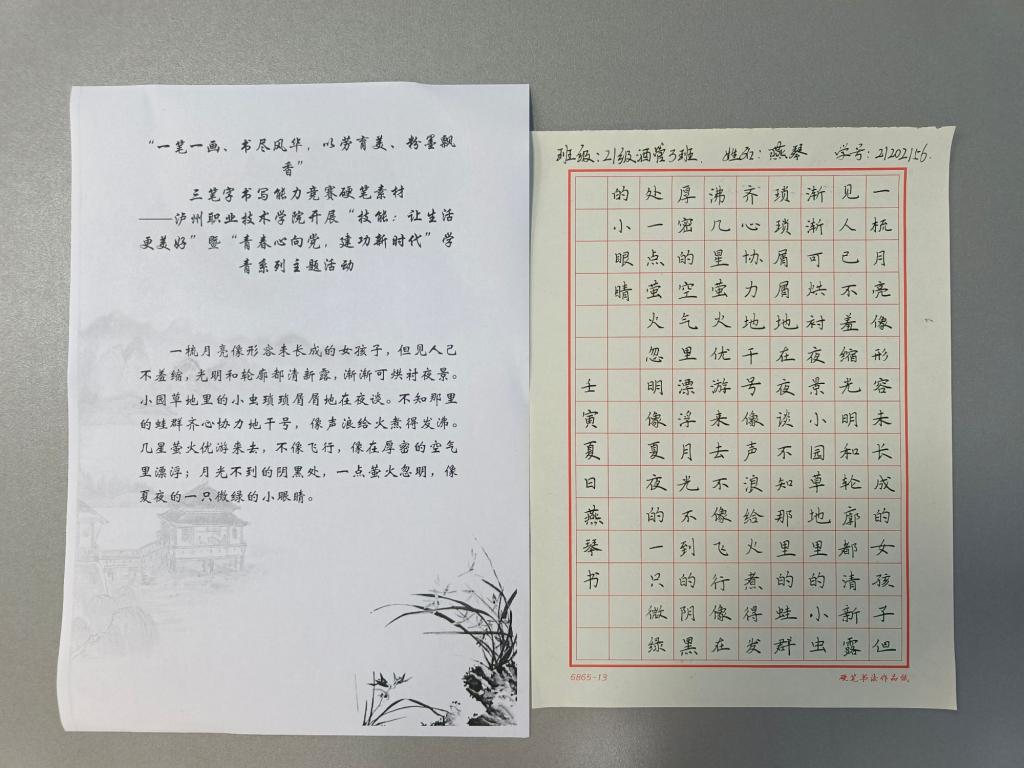 “一笔一画、书尽风华，以劳育美、粉墨飘
香”
三笔字书写能力竞赛硬笔素材
——泸州职业技术学院开展“技能：让生活
更美好”暨“青春心向党，建功新时代”学
青系列主题活动
一梳月亮像形容未长成的女孩子，但见人已
不羞缩，光明和轮廓都清新露，渐渐可烘衬夜景。
小园草地里的小虫琐琐屑屑地在夜谈。不知那里
的蛙群齐心协力地干号，像声浪给火煮得发沸。
几星萤火优游来去，不像飞行，像在厚密的空气
里漂浮；月光不到的阴黑处，一点萤火忽明，像
夏夜的一只微绿的小眼睛。
班级：21级酒管3班. 姓名：燕琴 学号：21202156.
一梳月亮像形容未长成的女孩子但
见人已不羞缩光明和轮廓都清新露
渐渐可烘衬夜景小园草地里的小虫
琐琐屑屑地在夜谈不知那里的蛙群
齐心协力地干号像声浪给火煮得发
沸几星萤火优游来去不像飞行像在
厚密的空气里漂浮月光不到的阴黑
处一点萤火忽明像夏夜的一只微绿
的小眼睛
壬寅夏日燕琴书
6865-13
硬笔书法作品纸